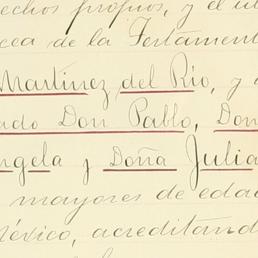 echos propios, y el ul
cea de la Testament
Martinez del Rio, y
ado Don Pablo, Don
ngela y Doña Julia
mayores de edad
México, acreditand